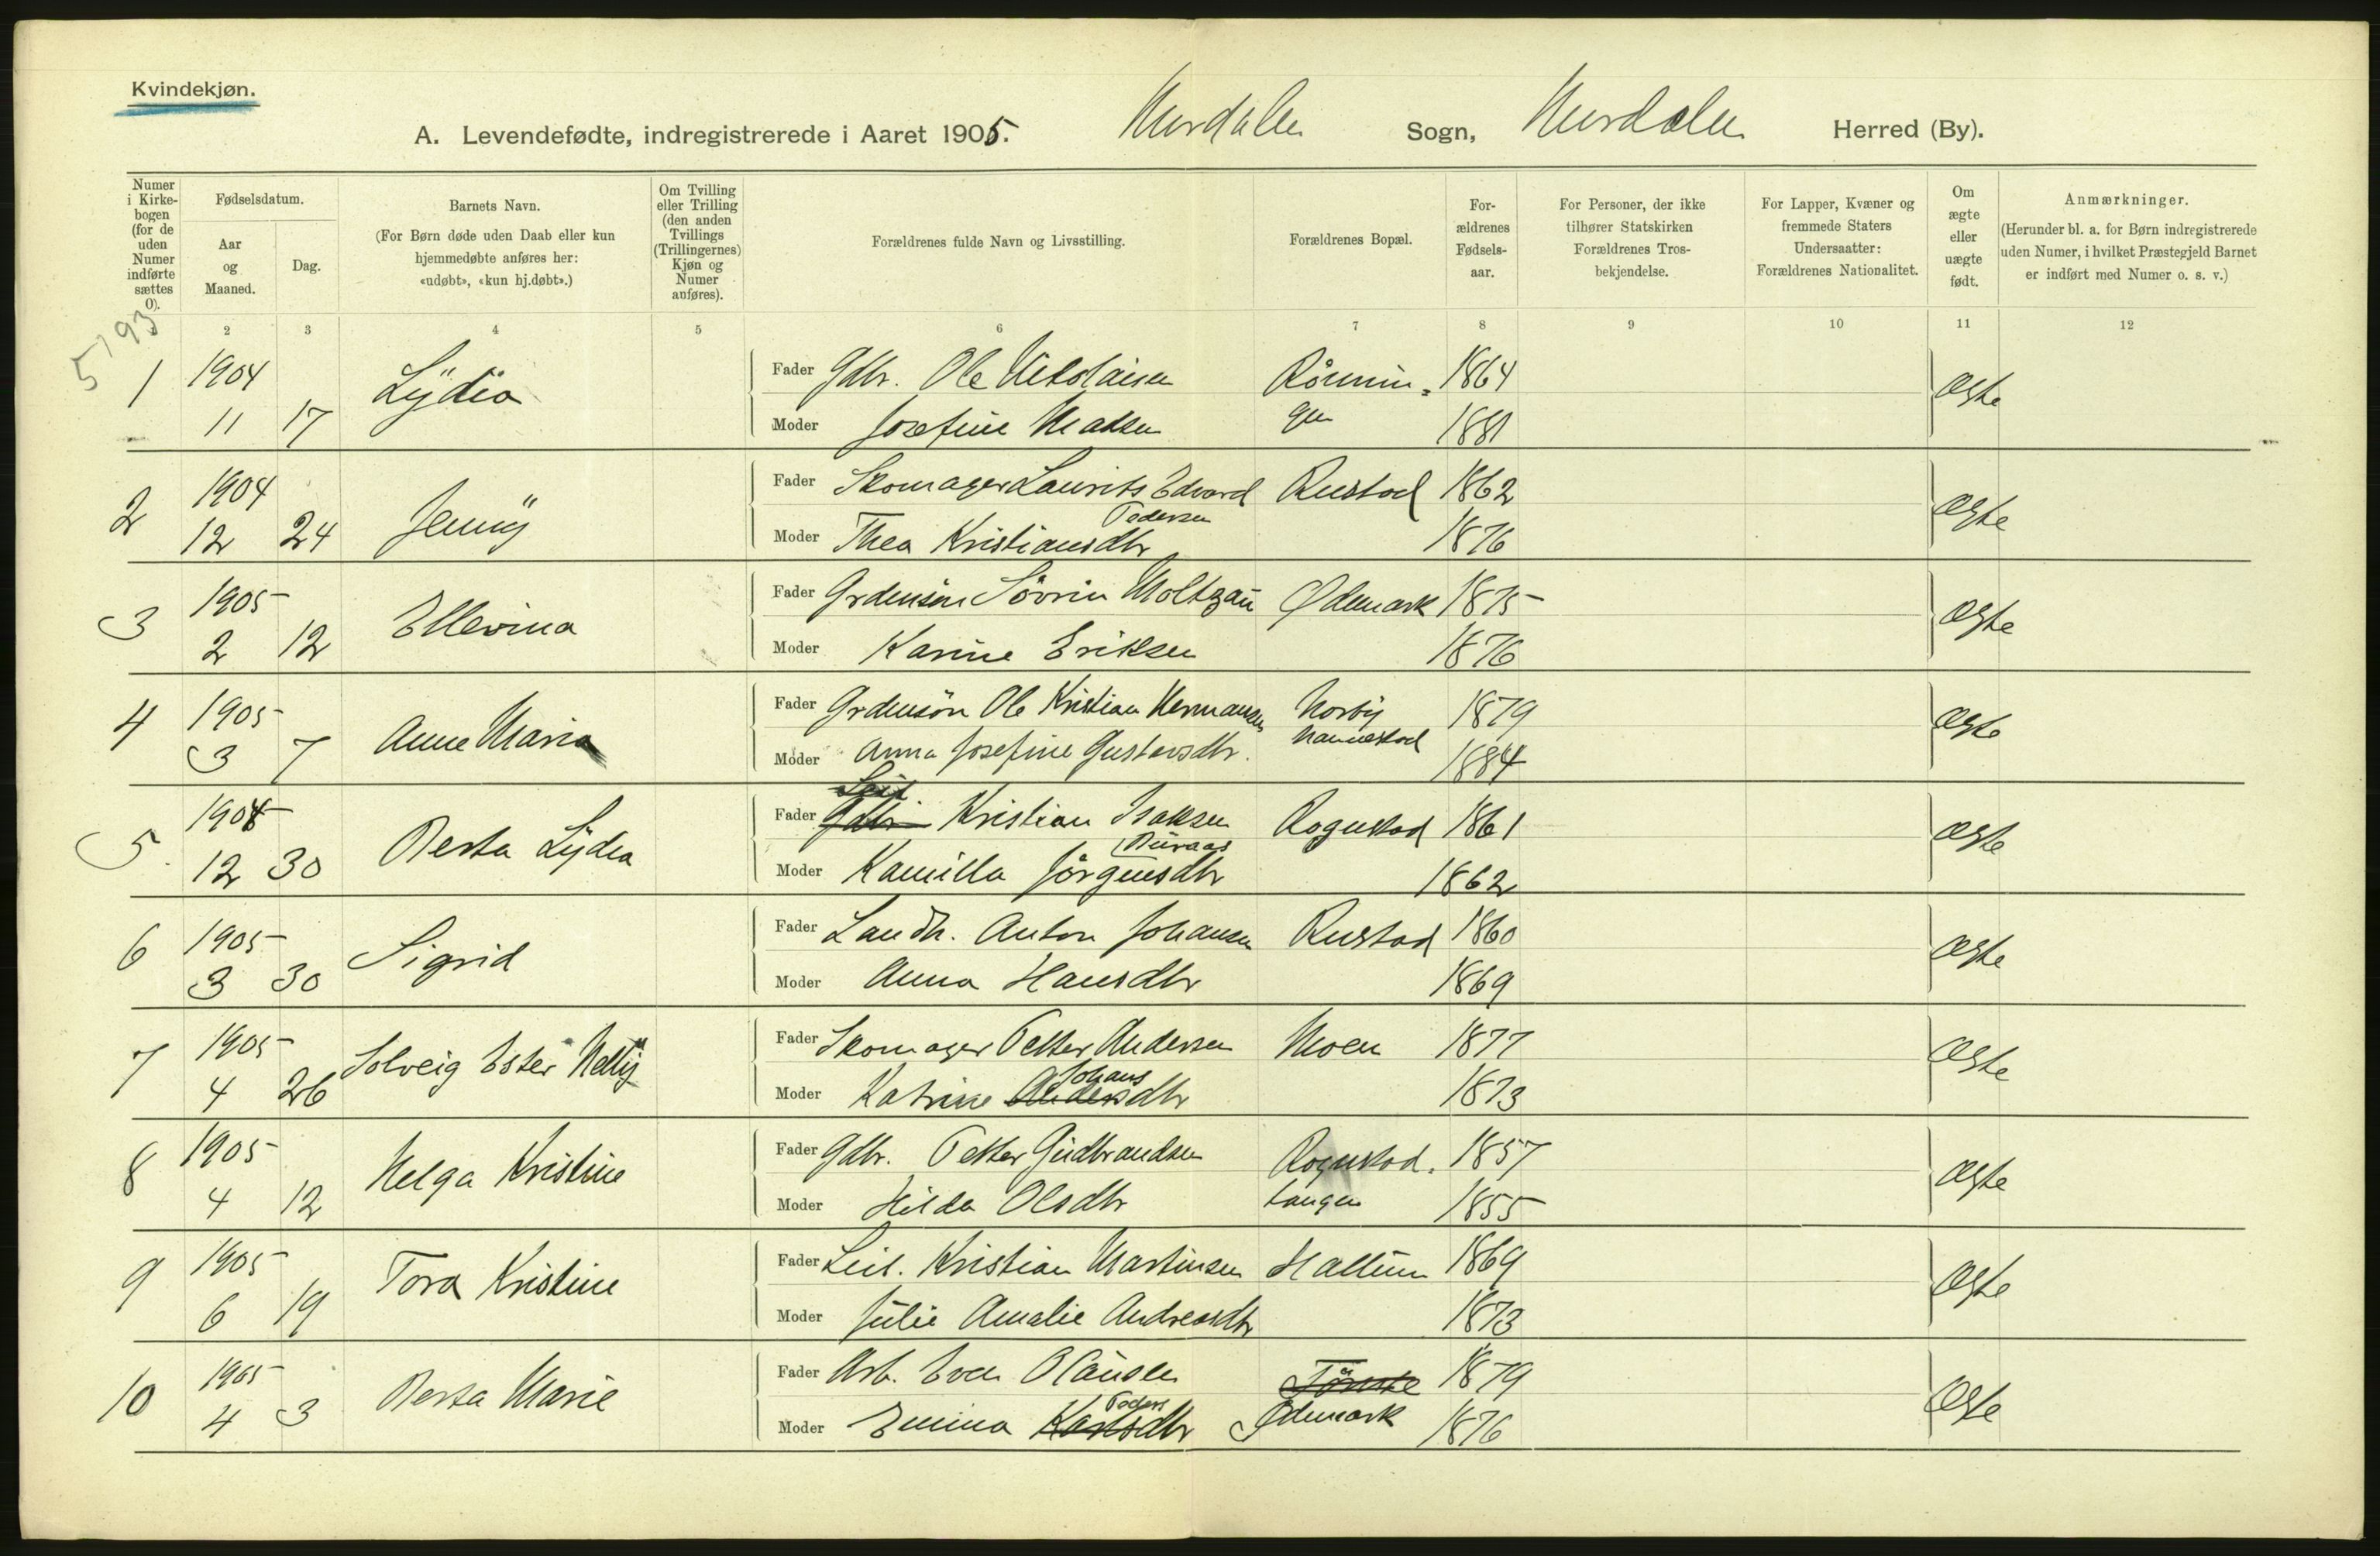 Kvindekjøn.
A. Levendefødte, indregistrerede i Aaret 1905. Hurdalen Sogn, Hurdalen Herred (By).
Numer i Kirkebogen (for de uden Numer indførte sættes 0).
Fødselsdatum.
Aar og Maaned.
Dag.
Barnets Navn.
(For Børn døde uden Daab eller kun hjemmedøbte anføres her: «udøbt», «kun hj.døbt».)
Om Tvilling eller Trilling (den anden Tvillings (Trillingernes) Kjøn og Numer anføres).
Forældrenes fulde Navn og Livsstilling.
Forældrenes Bopæl.
For-ældrenes Fødsels-aar.
For Personer, der ikke tilhører Statskirken Forældrenes Tros-bekjendelse.
For Lapper, Kvæner og fremmede Staters Undersaatter: Forældrenes Nationalitet.
Om ægte eller uægte født.
Anmærkninger.
(Herunder bl. a. for Børn indregistrerede uden Numer, i hvilket Præstegjeld Barnet er indført med Numer o. s. v.)
2 3 4 5 6 7 8 9 10 11 12
5193
1 1904 Lydia Fader Gdbr. Ole Nikolaisen 1864 ægte
11 17 Moder Josefine Madsen 1881
2 1904 Jenny Fader Skomager Laurits Edvard Rustad 1862 ægte
Pedersen
12 24 Moder Thea Kristiansdtr 1876
3 1905 Ellevina Fader Grdmsøn Søvrin Moltzau Ødemark 1875 ægte
2 12 Moder Karine Eriksen 1876
4 1905 Anne Maria Fader Grdmsøn Ole Kristian Hermansen Norby 1879 ægte
Nannestad
3 7 Moder Anna Josefine Gustavsdtr. 1884
Leil
5 1904 Berta Lydia Fader Gdbr Kristian Isaksen Rognstad 1861 ægte
12 30 Moder Kamilla Jørgensdtr 1862
6 1905 Sigrid Fader Landh. Anton Johansen Rustad 1860 ægte
3 30 Moder Anna Hansdtr 1869
7 1905 Solveig Ester Nelly Fader Skomager Petter Andersen Moen 1877 ægte
Johans
4 26 Moder Katrine Andersdtr 1873
8 1905 Helga Kristine Fader Gdbr. Petter Gudbrandsen Rognstad. 1857 ægte
4 12 Moder Hilda Olsdtr tangen 1855
9 1905 Tora Kristine Fader Leil. Kristian Martinsen Hallum 1869 ægte
6 19 Moder Julie Amalie Andreasdtr 1873
10 1905 Berta Marie Fader Arb. Even Olausen 1879 ægte
Peders
4 3 Moder Emma Karlsdtr Ødemark 1876